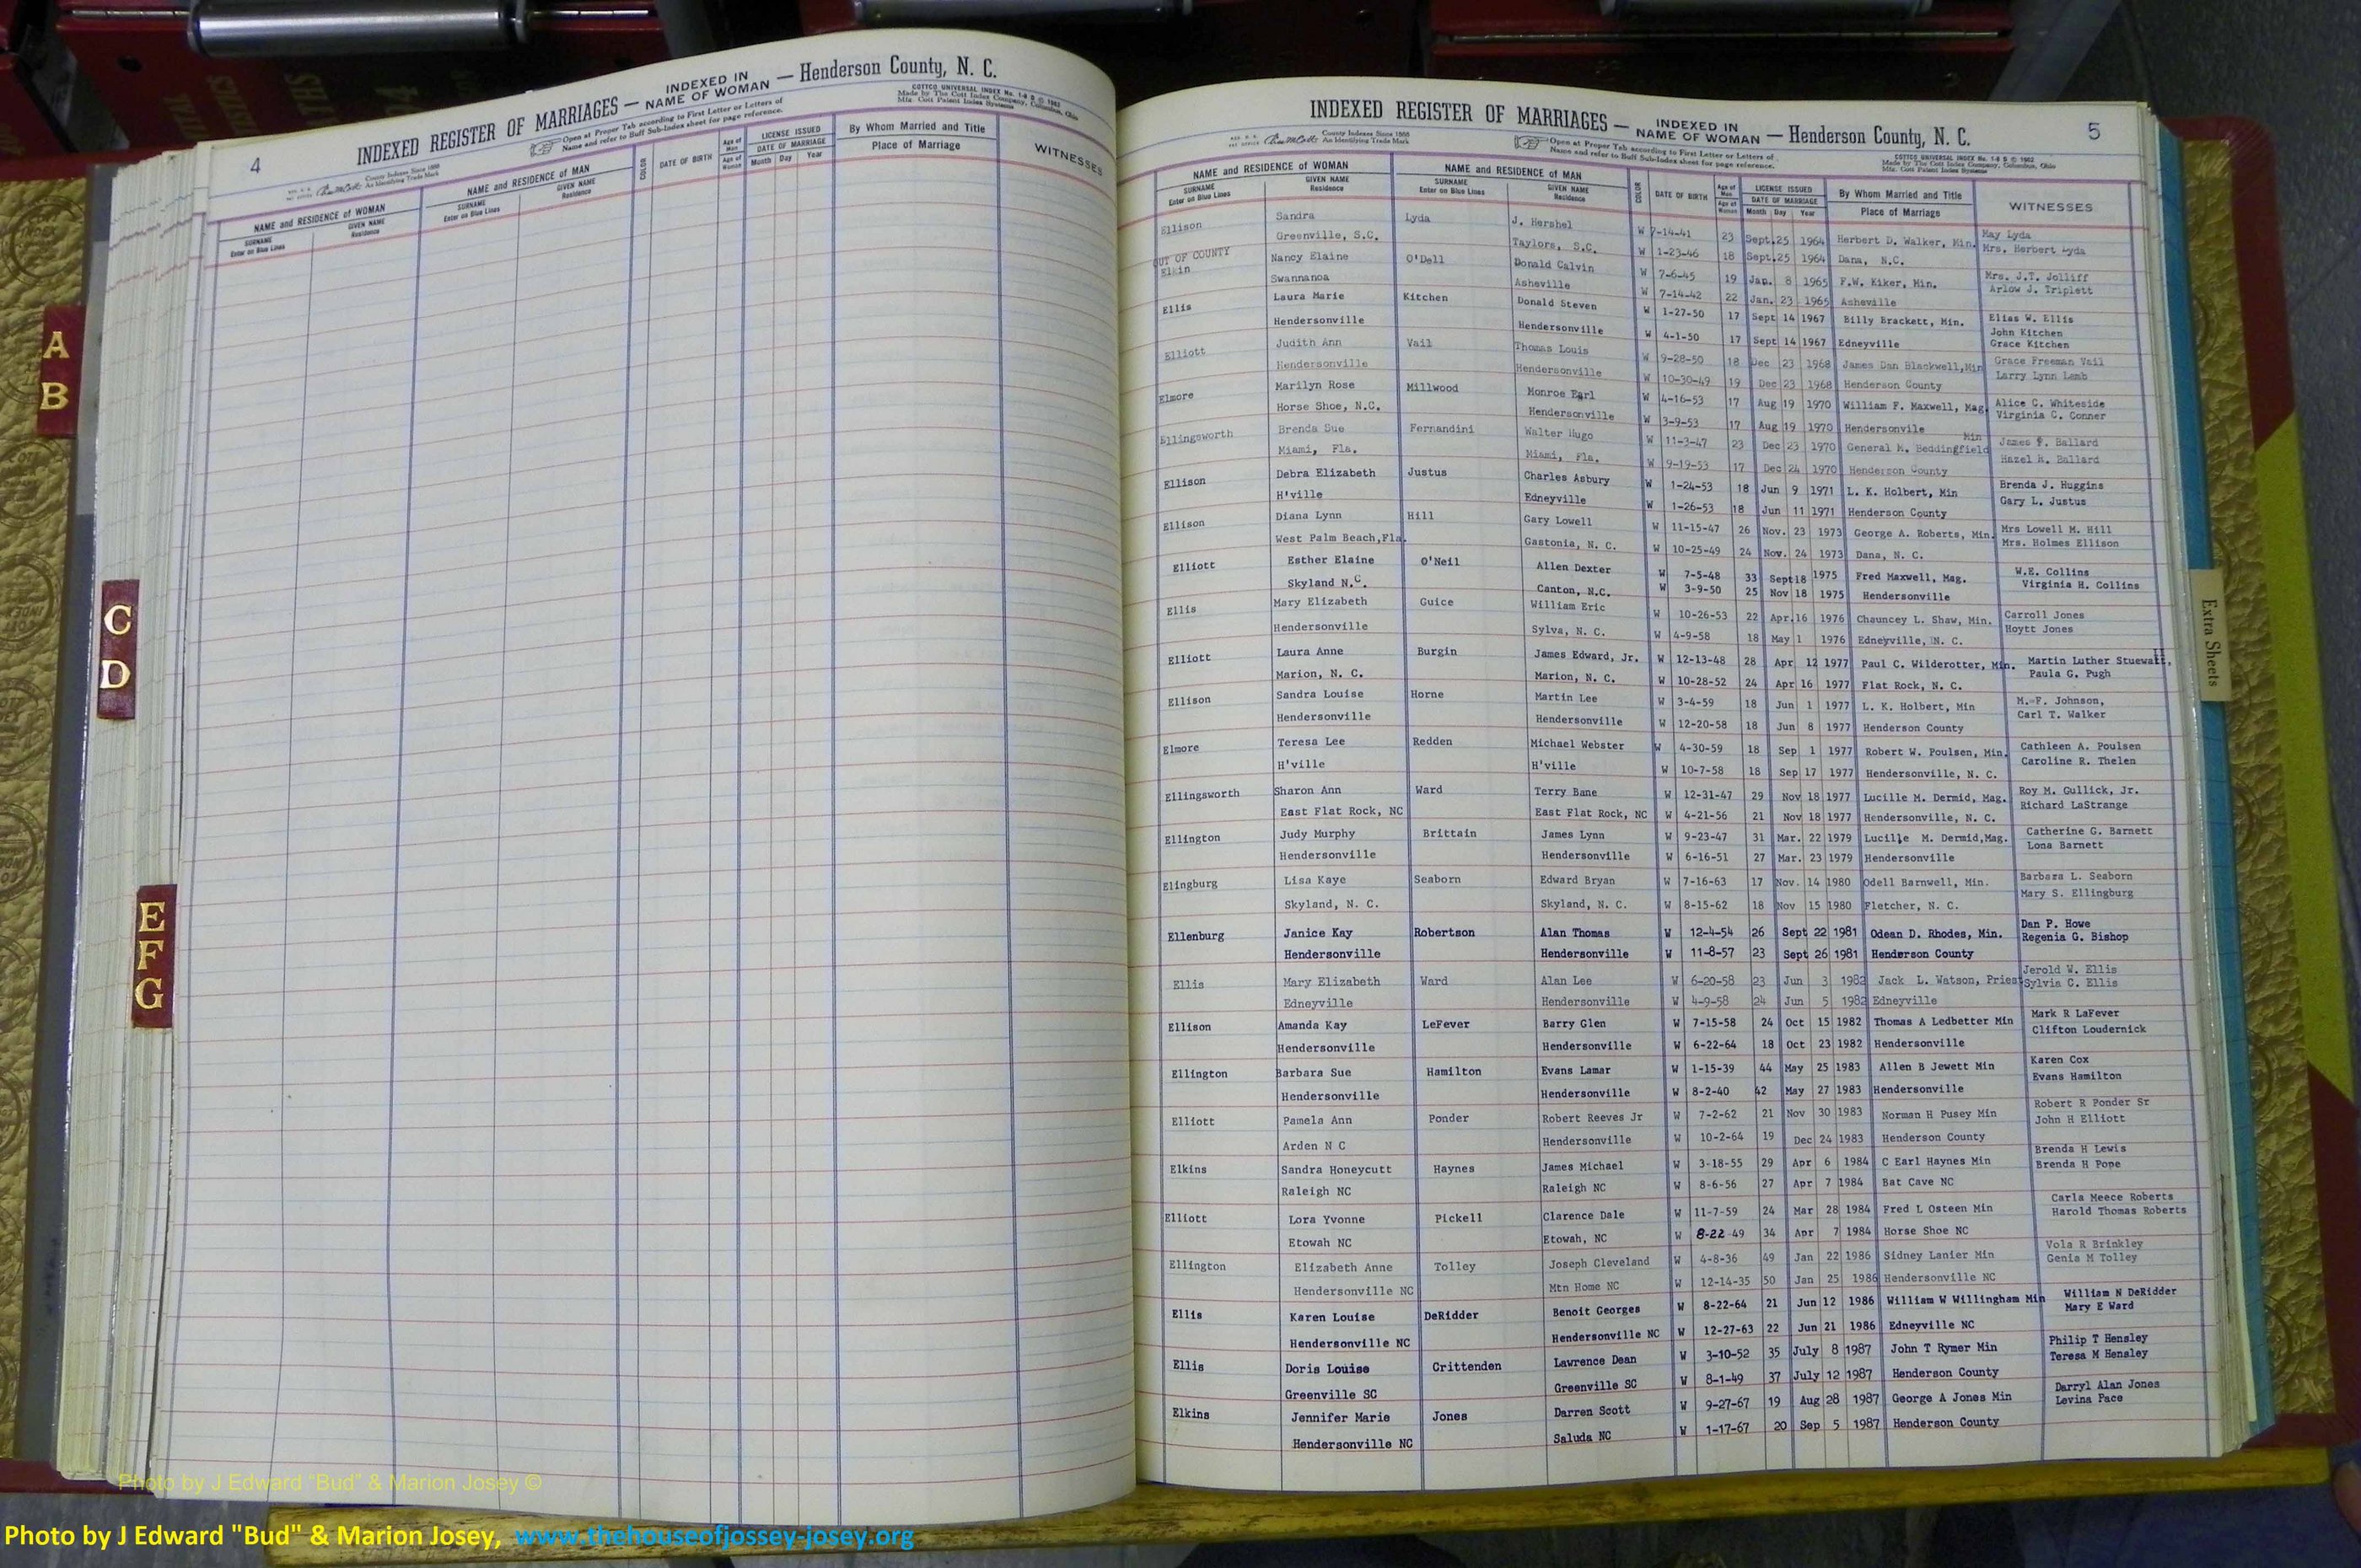 4
INDEXED REGISTER OF MARRIAGES — INDEXED IN NAME OF WOMAN — Henderson County, N. C.
County Indexes Since 1888
An Identifying Trade Mark
Open at Proper Tab according to First Letter or Letters of
Name and refer to Buff Sub-Index sheet for page reference.
COTTCO UNIVERSAL INDEX No. 1-8 B © 1962
Made by The Cott Index Company, Columbus, Ohio
Mfg. Cott Patent Index Systems
NAME and RESIDENCE of WOMAN
SURNAME Enter on Blue Lines
GIVEN NAME Residence
NAME and RESIDENCE OF MAN
SURNAME Enter on Blue Lines
GIVEN NAME Residence
COLOR
DATE OF BIRTH
Age of Man
Age of Woman
LICENSE ISSUED
DATE OF MARRIAGE
Month Day Year
By Whom Married and Title
Place of Marriage
WITNESSES
A
B
C
D
E
F
G
5
INDEXED REGISTER OF MARRIAGES — INDEXED IN NAME OF WOMAN — Henderson County, N. C.
County Indexes Since 1888
An Identifying Trade Mark
Open at Proper Tab according to First Letter or Letters of
Name and refer to Buff Sub-Index sheet for page reference.
COTTCO UNIVERSAL INDEX No. 1-8 B © 1962
Made by The Cott Index Company, Columbus, Ohio
Mfg. Cott Patent Index Systems
NAME and RESIDENCE OF WOMAN
SURNAME Enter on Blue Lines
GIVEN NAME Residence
NAME and RESIDENCE OF MAN
SURNAME Enter on Blue Lines
GIVEN NAME Residence
COLOR
DATE OF BIRTH
Age of Man
Age of Woman
LICENSE ISSUED
DATE OF MARRIAGE
Month Day Year
By Whom Married and Title
Place of Marriage
WITNESSES
Ellison Sandra Lyda J. Hershel W 7-14-41 23 Sept.25 1964 Herbert D. Walker, Min. May Lyda
Greenville, S.C. Taylors, S.C. W 1-23-46 18 Sept.25 1964 Dana, N.C. Mrs. Herbert Lyda
OUT OF COUNTY
Elkin Nancy Elaine O'Dell Donald Calvin W 7-6-45 19 Jan. 8 1965 F.W. Kiker, Min. Mrs. J.T. Jolliff
Swannanoa Asheville W 7-14-42 22 Jan. 23 1965 Asheville Arlow J. Triplett
Ellis Laura Marie Kitchen Donald Steven W 1-27-50 17 Sept 14 1967 Billy Brackett, Min. Elias W. Ellis
John Kitchen
Hendersonville Hendersonville W 4-1-50 17 Sept 14 1967 Edneyville Grace Kitchen
Elliott Judith Ann Vail Thomas Louis W 9-28-50 18 Dec 23 1968 James Dan Blackwell,Min Grace Freeman Vail
Hendersonville Hendersonville W 10-30-49 19 Dec 23 1968 Henderson County Larry Lynn Lamb
Elmore Marilyn Rose Millwood Monroe Earl W 4-16-53 17 Aug 19 1970 William F. Maxwell, Mag. Alice C. Whiteside
Horse Shoe, N.C. Hendersonville W 3-9-53 17 Aug 19 1970 Hendersonvile Virginia C. Conner
Ellingsworth Brenda Sue Fernandini Walter Hugo W 11-3-47 23 Dec 23 1970 General M. Beddingfield Min James P. Ballard
Miami, Fla. Miami, Fla. W 9-19-53 17 Dec 24 1970 Henderson County Hazel R. Ballard
Ellison Debra Elizabeth Justus Charles Asbury W 1-24-53 18 Jun 9 1971 L. K. Holbert, Min Brenda J. Huggins
H'ville Edneyville W 1-26-53 18 Jun 11 1971 Henderson County Gary L. Justus
Ellison Diana Lynn Hill Gary Lowell W 11-15-47 26 Nov. 23 1973 George A. Roberts, Min. Mrs Lowell M. Hill
West Palm Beach,Fla. Gastonia, N. C. W 10-25-49 24 Nov. 24 1973 Dana, N. C. Mrs. Holmes Ellison
Elliott Esther Elaine O'Neil Allen Dexter W 7-5-48 33 Sept18 1975 Fred Maxwell, Mag. W.E. Collins
Skyland N.C. Canton, N.C. W 3-9-50 25 Nov 18 1975 Hendersonville Virginia H. Collins
Ellis Mary Elizabeth Guice William Eric W 10-26-53 22 Apr.16 1976 Chauncey L. Shaw, Min. Carroll Jones
Hendersonville Sylva, N. C. W 4-9-58 18 May 1 1976 Edneyville, N. C. Hoytt Jones
Elliott Laura Anne Burgin James Edward, Jr. W 12-13-48 28 Apr 12 1977 Paul C. Wilderotter, Min. Martin Luther Stuewalt, II
Marion, N. C. Marion, N. C. W 10-28-52 24 Apr 16 1977 Flat Rock, N. C. Paula G. Pugh
Ellison Sandra Louise Horne Martin Lee W 3-4-59 18 Jun 1 1977 L. K. Holbert, Min M. F. Johnson,
Hendersonville Hendersonville W 12-20-58 18 Jun 8 1977 Henderson County Carl T. Walker
Elmore Teresa Lee Redden Michael Webster W 4-30-59 18 Sep 1 1977 Robert W. Poulsen, Min. Cathleen A. Poulsen
H'ville H'ville W 10-7-58 18 Sep 17 1977 Hendersonville, N. C. Caroline R. Thelen
Ellingsworth Sharon Ann Ward Terry Bane W 12-31-47 29 Nov 18 1977 Lucille M. Dermid, Mag. Roy M. Gullick, Jr.
East Flat Rock, NC East Flat Rock, NC W 4-21-56 21 Nov 18 1977 Hendersonville, N. C. Richard LaStrange
Ellington Judy Murphy Brittain James Lynn W 9-23-47 31 Mar. 22 1979 Lucille M. Dermid,Mag. Catherine G. Barnett
Hendersonville Hendersonville W 6-16-51 27 Mar. 23 1979 Hendersonville Lona Barnett
Elingburg Lisa Kaye Seaborn Edward Bryan W 7-16-63 17 Nov. 14 1980 Odell Barnwell, Min. Barbara L. Seaborn
Skyland, N. C. Skyland, N. C. W 8-15-62 18 Nov 15 1980 Fletcher, N. C. Mary S. Ellingburg
Ellenburg Janice Kay Robertson Alan Thomas W 12-4-54 26 Sept 22 1981 Odean D. Rhodes, Min. Dan P. Howe
Hendersonville Hendersonville W 11-8-57 23 Sept 26 1981 Henderson County Regenia G. Bishop
Ellis Mary Elizabeth Ward Alan Lee W 6-20-58 23 Jun 3 1982 Jack L. Watson, Priest Jerold W. Ellis
Edneyville Hendersonville W 4-9-58 24 Jun 5 1982 Edneyville Sylvia C. Ellis
Ellison Amanda Kay LeFever Barry Glen W 7-15-58 24 Oct 15 1982 Thomas A Ledbetter Min Mark R LaFever
Hendersonville Hendersonville W 6-22-64 18 Oct 23 1982 Hendersonville Clifton Loudernick
Ellington Barbara Sue Hamilton Evans Lamar W 1-15-39 44 May 25 1983 Allen B Jewett Min Karen Cox
Hendersonville Hendersonville W 8-2-40 42 May 27 1983 Hendersonville Evans Hamilton
Elliott Pamela Ann Ponder Robert Reeves Jr W 7-2-62 21 Nov 30 1983 Norman H Pusey Min Robert R Ponder Sr
Arden N C Hendersonville W 10-2-64 19 Dec 24 1983 Henderson County John H Elliott
Elkins Sandra Honeycutt Haynes James Michael W 3-18-55 29 Apr 6 1984 C Earl Haynes Min Brenda H Lewis
Raleigh NC Raleigh NC W 8-6-56 27 Apr 7 1984 Bat Cave NC Brenda H Pope
Elliott Lora Yvonne Pickell Clarence Dale W 11-7-59 24 Mar 28 1984 Fred L Osteen Min Carla Meece Roberts
Etowah NC Etowah, NC W 8-22 49 34 Apr 7 1984 Horse Shoe NC Harold Thomas Roberts
Ellington Elizabeth Anne Tolley Joseph Cleveland W 4-8-36 49 Jan 22 1986 Sidney Lanier Min Vola R Brinkley
Hendersonville NC Mtn Home NC W 12-14-35 50 Jan 25 1986 Hendersonville NC Genia M Tolley
Ellis Karen Louise DeRidder Benoit Georges W 8-22-64 21 Jun 12 1986 William W Willingham Min William N DeRidder
Hendersonville NC Hendersonville NC W 12-27-63 22 Jun 21 1986 Edneyville NC Mary E Ward
Ellis Doris Louise Crittenden Lawrence Dean W 3-10-52 35 July 8 1987 John T Rymer Min Philip T Hensley
Greenville SC Greenville SC W 8-1-49 37 July 12 1987 Henderson County Teresa M Hensley
Elkins Jennifer Marie Jones Darren Scott W 9-27-67 19 Aug 28 1987 George A Jones Min Darryl Alan Jones
Hendersonville NC Saluda NC W 1-17-67 20 Sep 5 1987 Henderson County Levina Pace
Extra Sheets
Photo by J Edward "Bud" & Marion Josey ©
Photo by J Edward "Bud" & Marion Josey, www.thehouseofjossey-josey.org